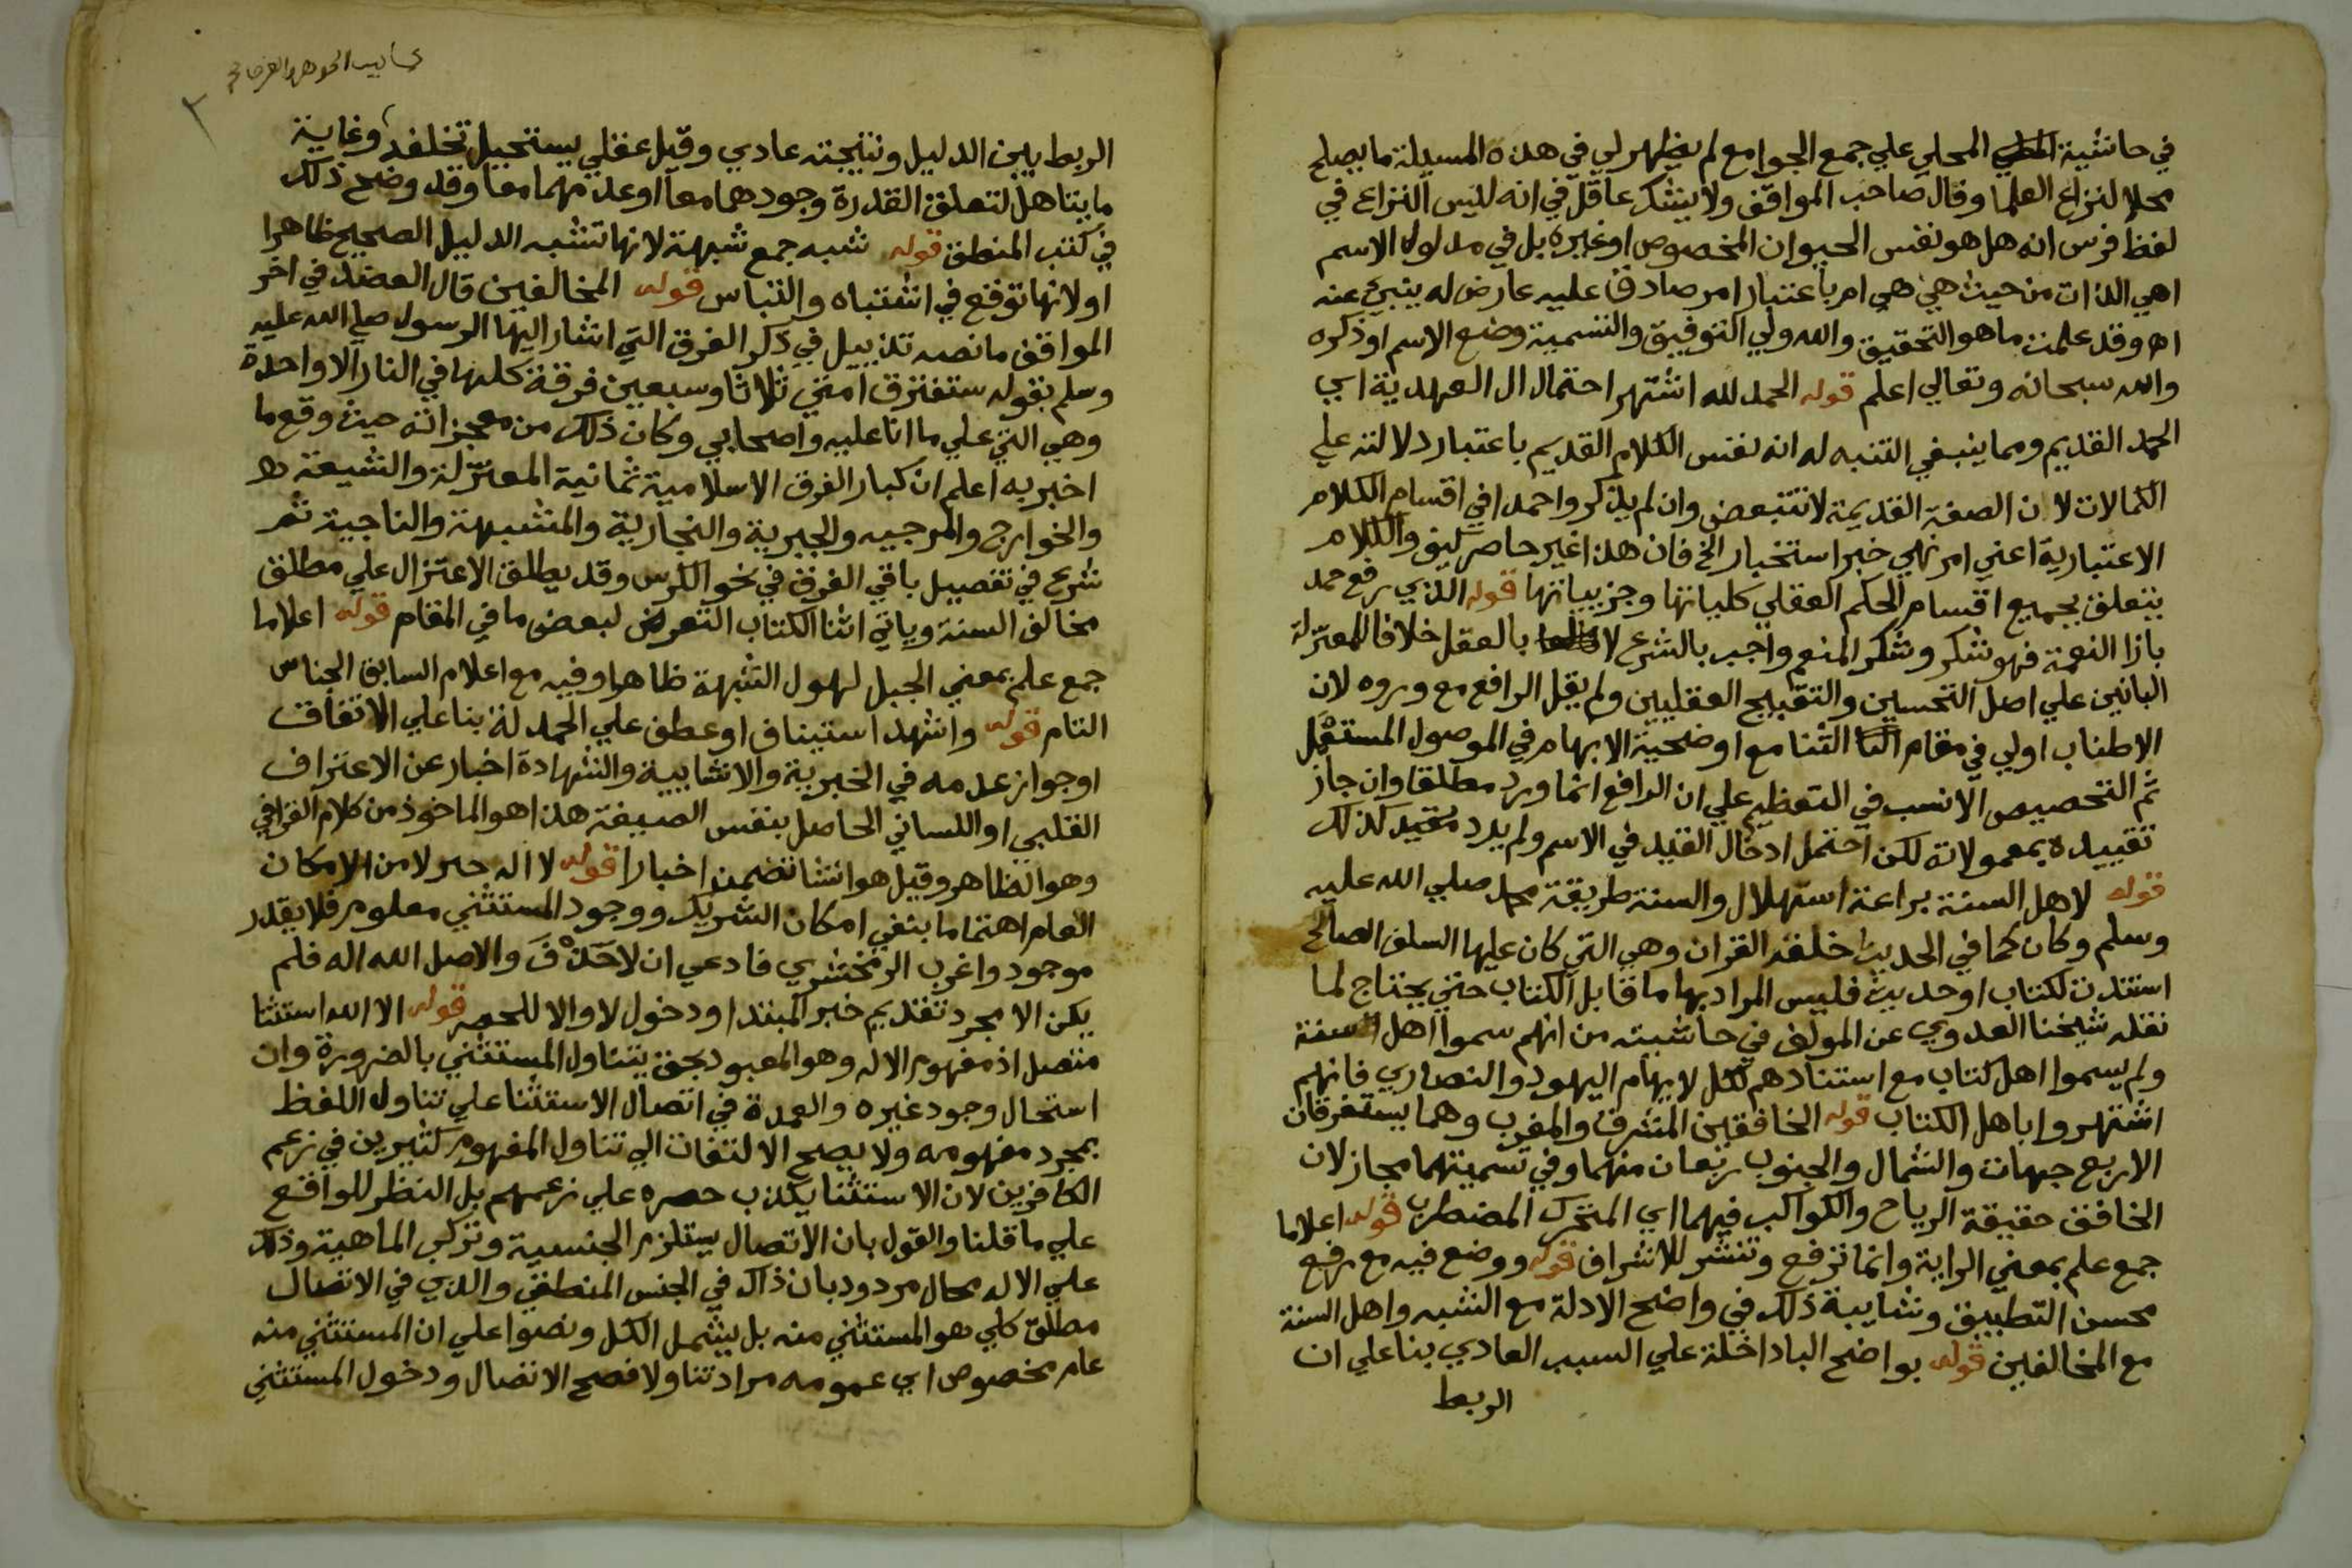 في حاشية المحلي علي جمع الجوامع لم يظهر لي في هذه المسيلة ما يصلح
محلا لنزاع العلما وقال صاحب المواقف ولا يشك عاقل في انه ليس النزاع في
لفظ فرس انه هل هو نفس الحيوان المخصوص او غيره بل في مدلول الاسم
اهي الذات من حيث هي هي ام باعتبار امر صادق عليه عارض له ينبئ عنه
اه وقد علمت ما هو التحقيق والله ولي التوفيق والتسمية وضع الاسم او ذكره
والله سبحانه وتعالي اعلم قوله الحمد لله اشتهر احتمال ال العهدية اي
الحمد القديم ومما ينبغي التنبه له انه نفس الكلام القديم باعتبار دلالته علي
الكمالات لان الصفة القديمة لا تتبعض وان لم يذكروا حمدا في اقسام الكلام
الاعتبارية اعني امر نهي خبر استخبار الخ فان هذا غير حاصر كيف والكلام
يتعلق بجميع اقسام الحكم العقلي كلياتها وجزيياتها قوله الذي رفع حمد
بازا النعمة فهو شكر وشكر المنعم واجب بالشرع لا بالعقل خلافا للمعتزلة
البانين علي اصل التحسين والتقبيح العقليين ولم يقل الرافع مع وروده لان
الاطناب اولي في مقام الثنا مع اوضحية الابهام في الموصول المستقبل
ثم التخصيص الانسب في التعظيم علي ان الرافع انما ورد مطلقا وان جاز
تقييده بمعمولاته لكن احتمل ادخال القيد في الاسم ولم يرد مقيد كذلك
قوله لاهل السنة براعة استهلال والسنة طريقة محمد صلي الله عليه
وسلم وكان كما في الحديث خلقه القران وهي التي كان عليها السلف الصالح
استندت لكتاب او حديث فليس المراد بها ما قابل الكتاب حتي يحتاج لما
نقله شيخنا العدوي عن المولف في حاشيته من انهم سموا اهل السنة
ولم يسموا اهل كتاب مع استنادهم لكل لايهام اليهود والنصاري فانهم
اشتهروا باهل الكتاب قوله الخافقين المشرق والمغرب وهما يستغرقان
الاربع جهات والشمال والجنوب ربعان منهما وفي تسميتهما مجاز لان
الخافق حقيقة الرياح والكواكب فيهما اي المتحرك المضطرب قوله اعلاما
جمع علم بمعني الراية وانما ترفع وتنشر للاشراف قوله ووضع فيه مع رفع
محسن التطبيق وشايبة ذلك في واضح الادلة مع الشبه واهل السنة
مع المخالفين قوله بواضح البا داخلة علي السبب العادي بنا علي ان
الربط
الربط بين الدليل ونتيجته عادي وقيل عقلي يستحيل تخلفه وغاية
ما يتاهل لتعلق القدرة وجودهما معا او عدمهما معا وقد وضح ذلك
في كتب المنطق قوله شبه جمع شبهة لانها تشبه الدليل الصحيح ظاهرا
او لانها توقع في اشتباه والتباس قوله المخالفين قال العضد في اخر
المواقف ما نصه تذييل في ذكر الفرق التي اشار اليها الرسول صلي الله عليه
وسلم بقوله ستفترق امتي ثلاثا وسبعين فرقة كلها في النار الا واحدة
وهي التي علي ما انا عليه واصحابي وكان ذلك من معجزاته حيث وقع ما
اخبر به اعلم ان كبار الفرق الاسلامية ثمانية المعتزلة والشيعة
والخوارج والمرجيه والجبرية والنجارية والمشبهة والناجية ثم
شرع في تفصيل باقي الفرق في نحو الكرس وقد يطلق الاعتزال علي مطلق
مخالف السنة وياتي اثنا الكتاب التعرض لبعض ما في المقام قوله اعلاما
جمع علم بمعني الجبل لهول الشبهة ظاهرا وفيه مع اعلام السابق الجناس
التام قوله واشهد استيناف او عطف علي الحمدلة بنا علي الاتفاق
او جواز عدمه في الخبرية والانشايية والشهادة اخبار عن الاعتراف
القلبي او اللساني الحاصل بنفس الصيغة هذا هو الماخوذ من كلام القرافي
وهو الظاهر وقيل هو انشا تضمن اخبارا قوله لا اله خبر لا من الامكان
العام اهتماما بنفي امكان الشريك ووجود المستثني معلوم فلا يقدر
موجود واغرب الزمخشري فادعي ان لا حذف والاصل الله اله فلم
يكن الا مجرد تقديم خبر المبتدا ودخول لا والا للحصر قوله الا الله استثنا
متصل اذ مفهوم الاله وهو المعبود بحق يتناول المستثني بالضرورة وان
استحال وجود غيره والعمدة في اتصال الاستثنا علي تناول اللفظ
بمجرد مفهومه ولا يصح الالتفات الي تناول المفهوم لكثيرين في زعم
الكافرين لان الاستثنا يكذب حصره علي زعمهم بل النظر للواقع
علي ما قلنا والقول بان الاتصال يستلزم الجنسية وتركب الماهية وذلك
علي الاله محال مردود بان ذاك في الجنس المنطقي والذي في الاتصال
مطلق كلي هو المستثني منه بل يشمل الكل ونصوا علي ان المستثني منه
عام مخصوص اي عمومه مراد تناولا فصح الاتصال ودخول المستثني